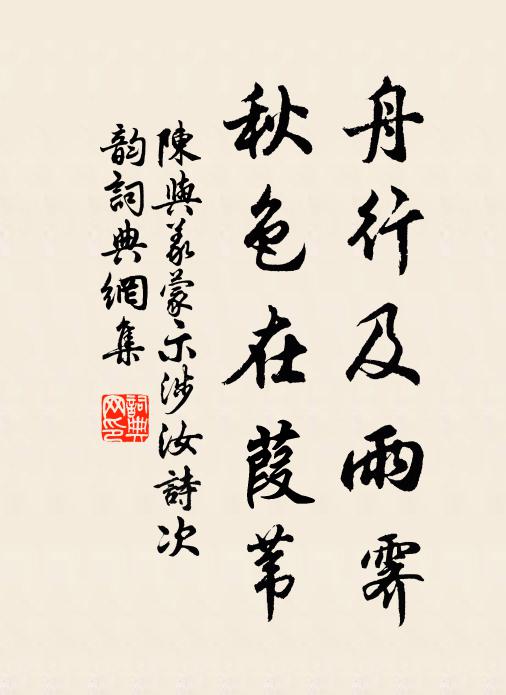 舟行及雨霁
秋色在葭苇
陳與義蒙示涉汝詩次
韵詞典網集
詞典
网印